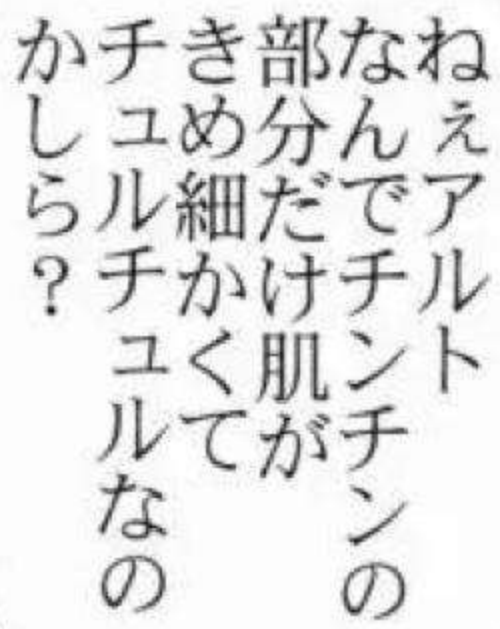 ねぇアルト
なんでチンチンの
部分だけ肌が
きめ細かくて
チュルチュルなの
かしら？